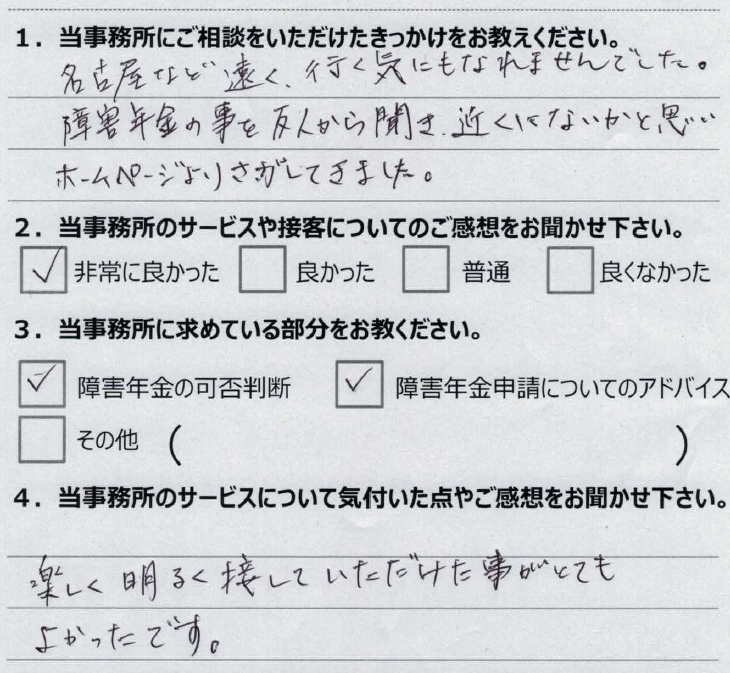 1. 当事務所にご相談をいただけたきっかけをお教えください。
名古屋など遠く、行く気にもなれませんでした。
障害年金の事を友人から聞き、近くにないかと思い
ホームページよりさがしてきました。
2. 当事務所のサービスや接客についてのご感想をお聞かせ下さい。
☑ 非常に良かった ☐ 良かった ☐ 普通 ☐ 良くなかった
3. 当事務所に求めている部分をお教ください。
☑ 障害年金の可否判断 ☑ 障害年金申請についてのアドバイス
☐ その他 ( )
4. 当事務所のサービスについて気付いた点やご感想をお聞かせ下さい。
楽しく明るく接していただけた事がとても
よかったです。